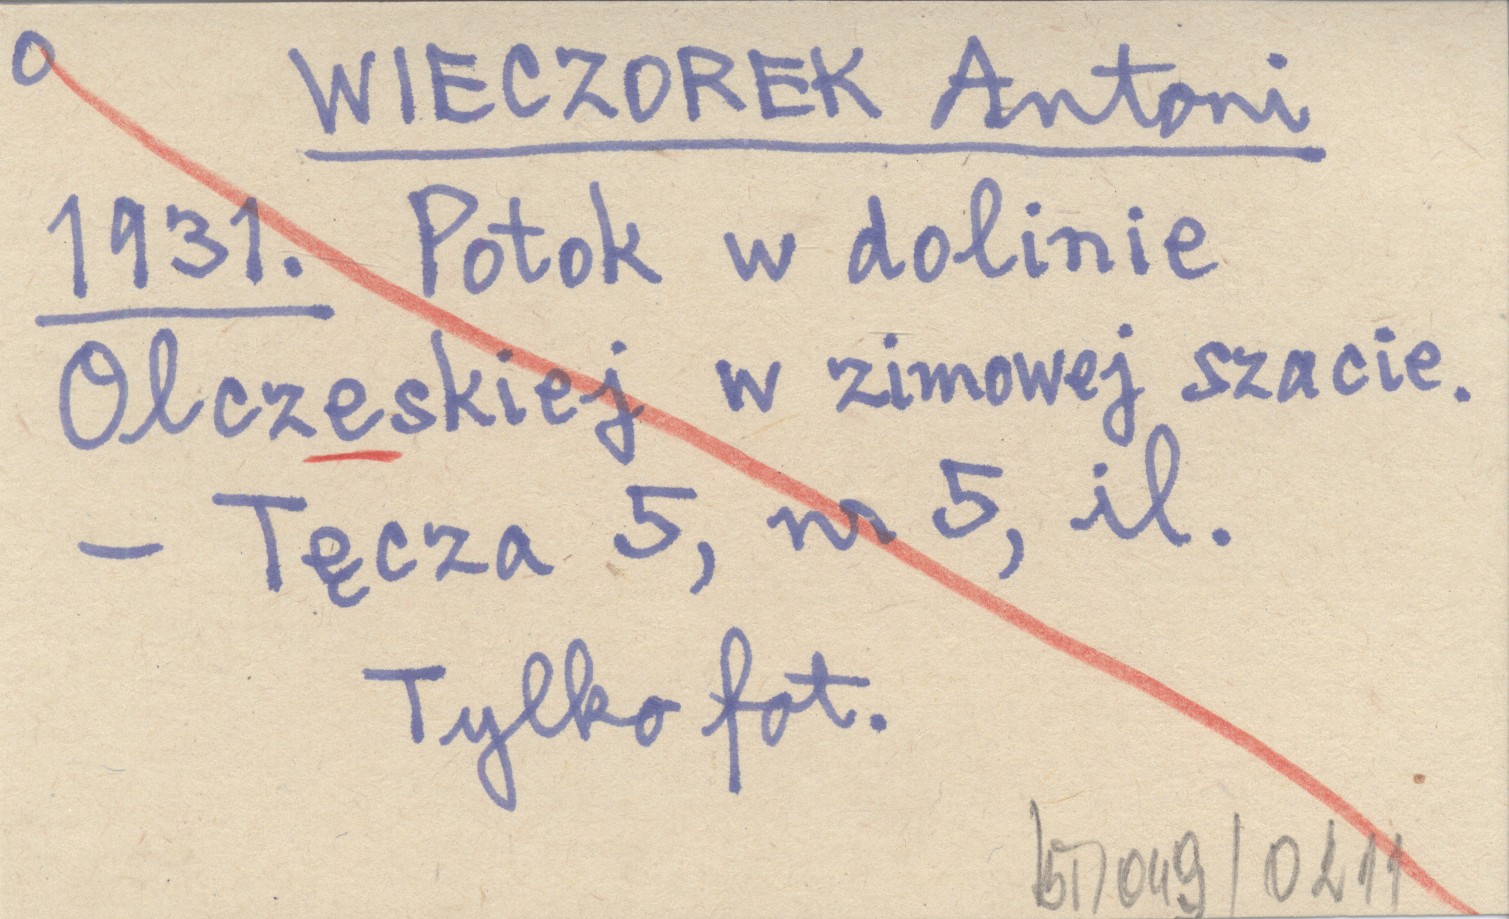 o
WIECZOREK Antoni
1931. Potok w dolinie
Olczeskiej w zimowej szacie.
– Tęcza 5, nr 5, il.
Tylko fot.
049/0211